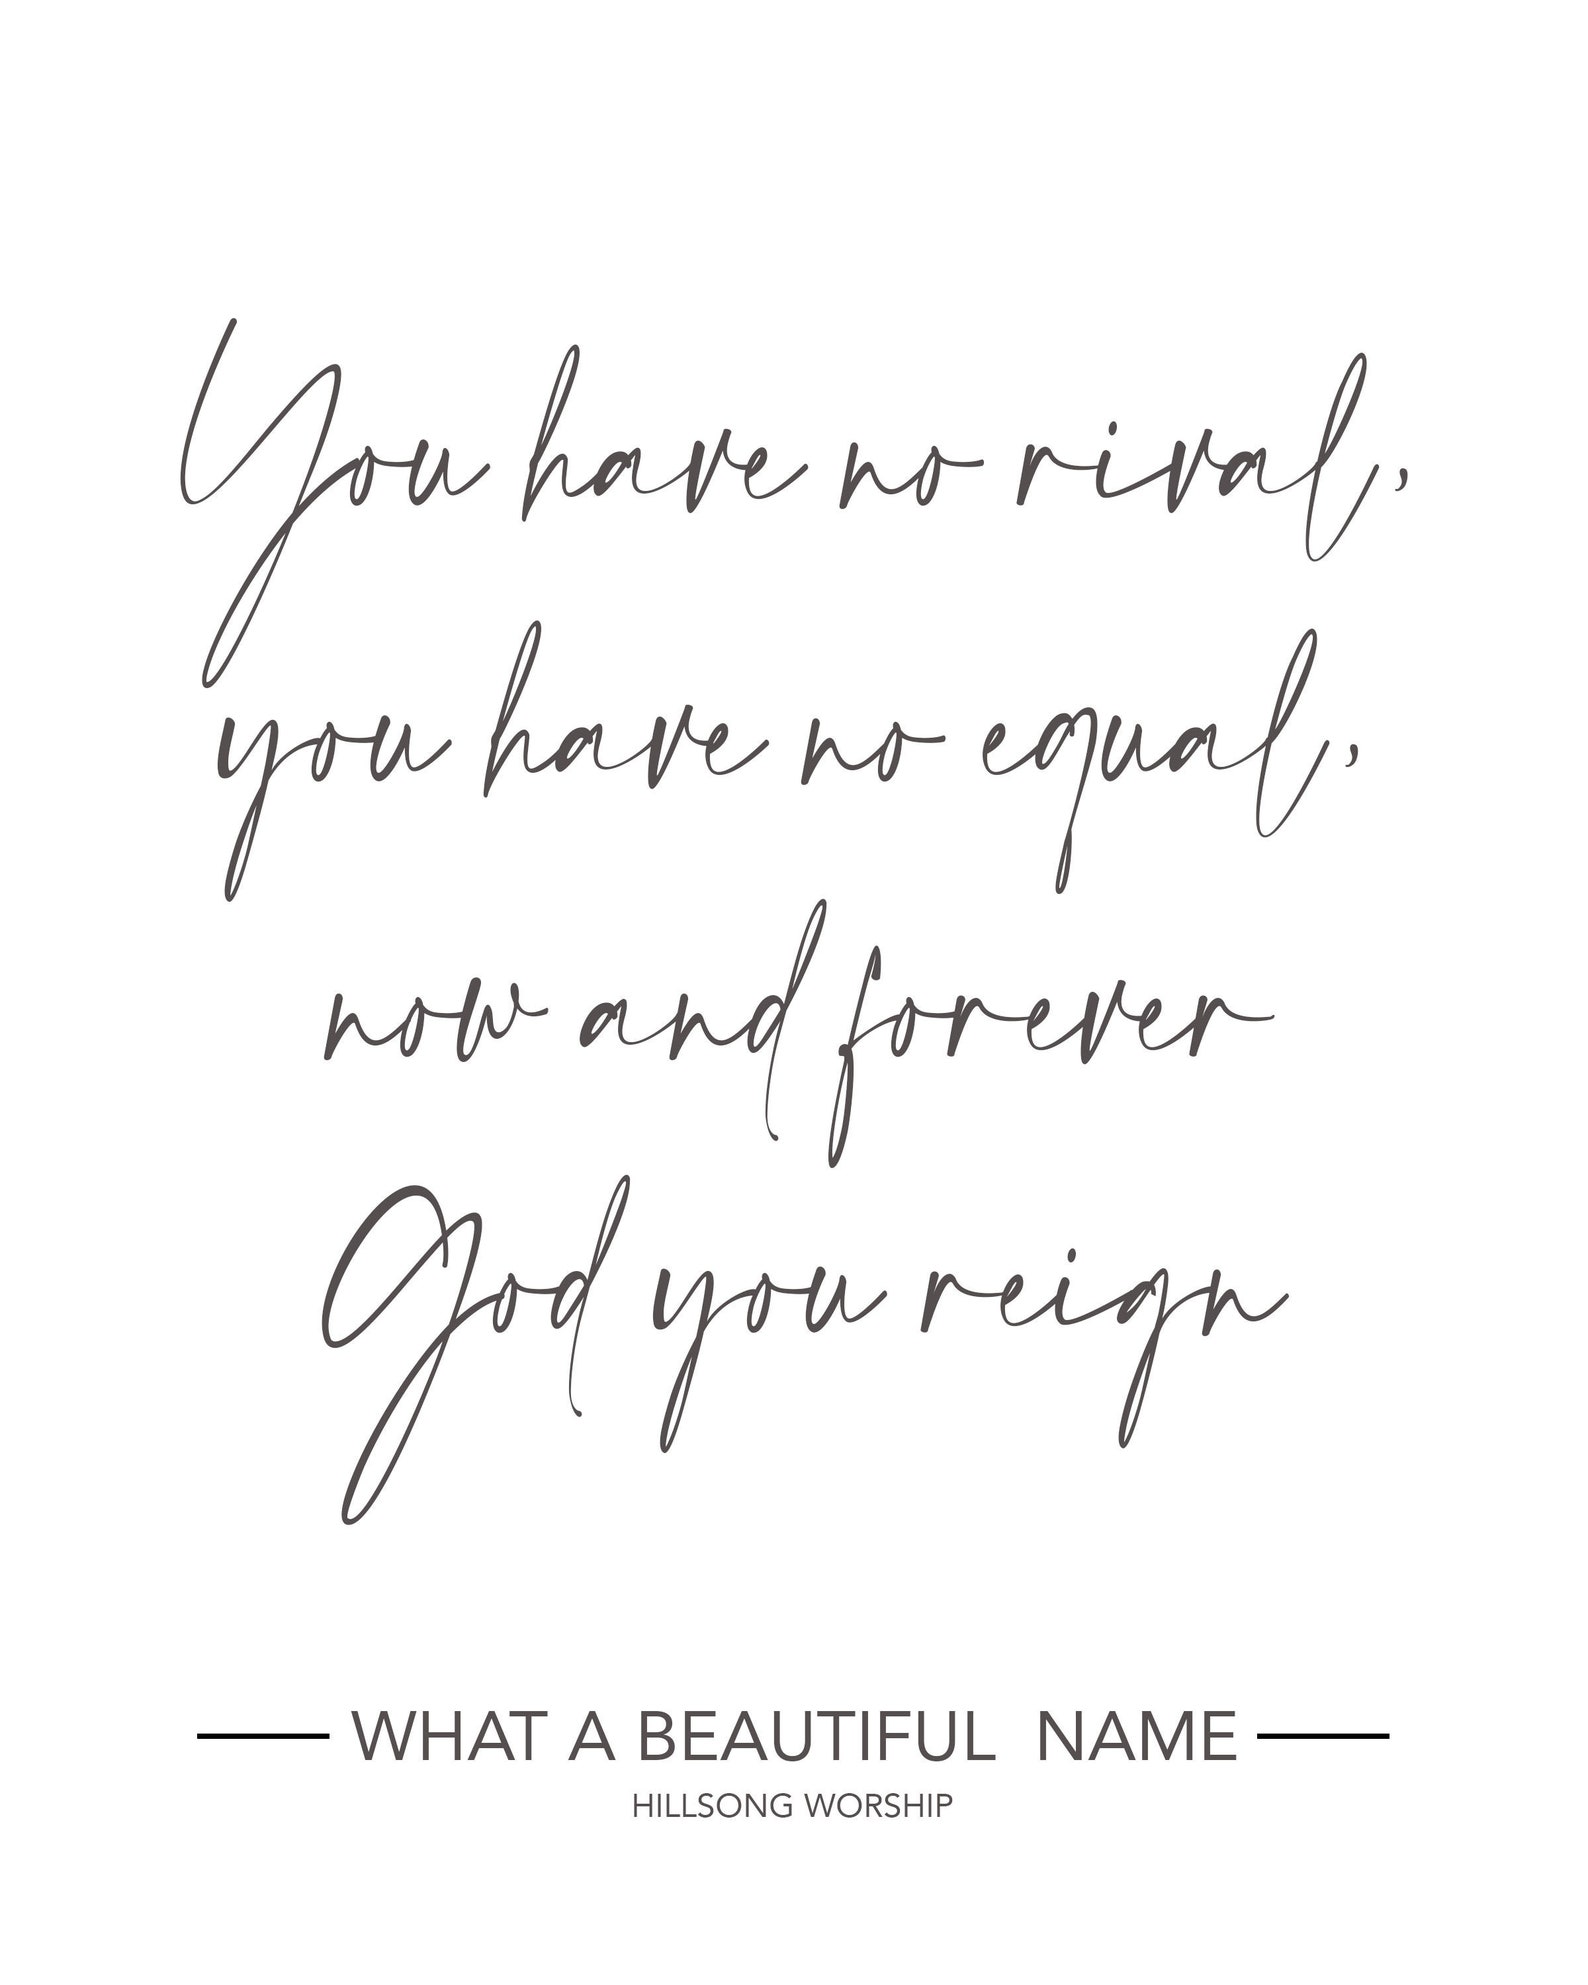 You have no rival,
you have no equal,
now and forever
God you reign
WHAT A BEAUTIFUL NAME
HILLSONG WORSHIP